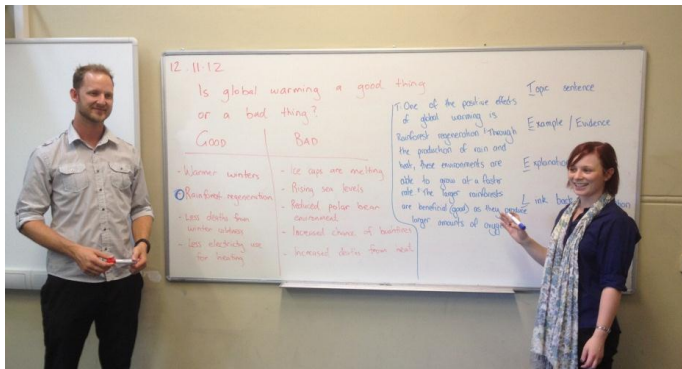 12.11.12
Is global warming a good thing
or a bad thing?
GOOD
- Warmer winters
- Rainforest regeneration
- Less deaths from
winter illness
- Less electricity use
for heating
BAD
- Ice caps are melting
- Rising sea levels
- Reduced polar bear
environment
- Increased chance of
- Increased deaths from heat
T: One of the positive effects
of global warming is
Rainforest regeneration. Through
the production of rain and
heat, these environments are
able to grow at a faster
rate. The larger rainforests
are beneficial (good) as they produce
larger amounts of
Topic sentence
Example / Evidence
Explanation
Link back